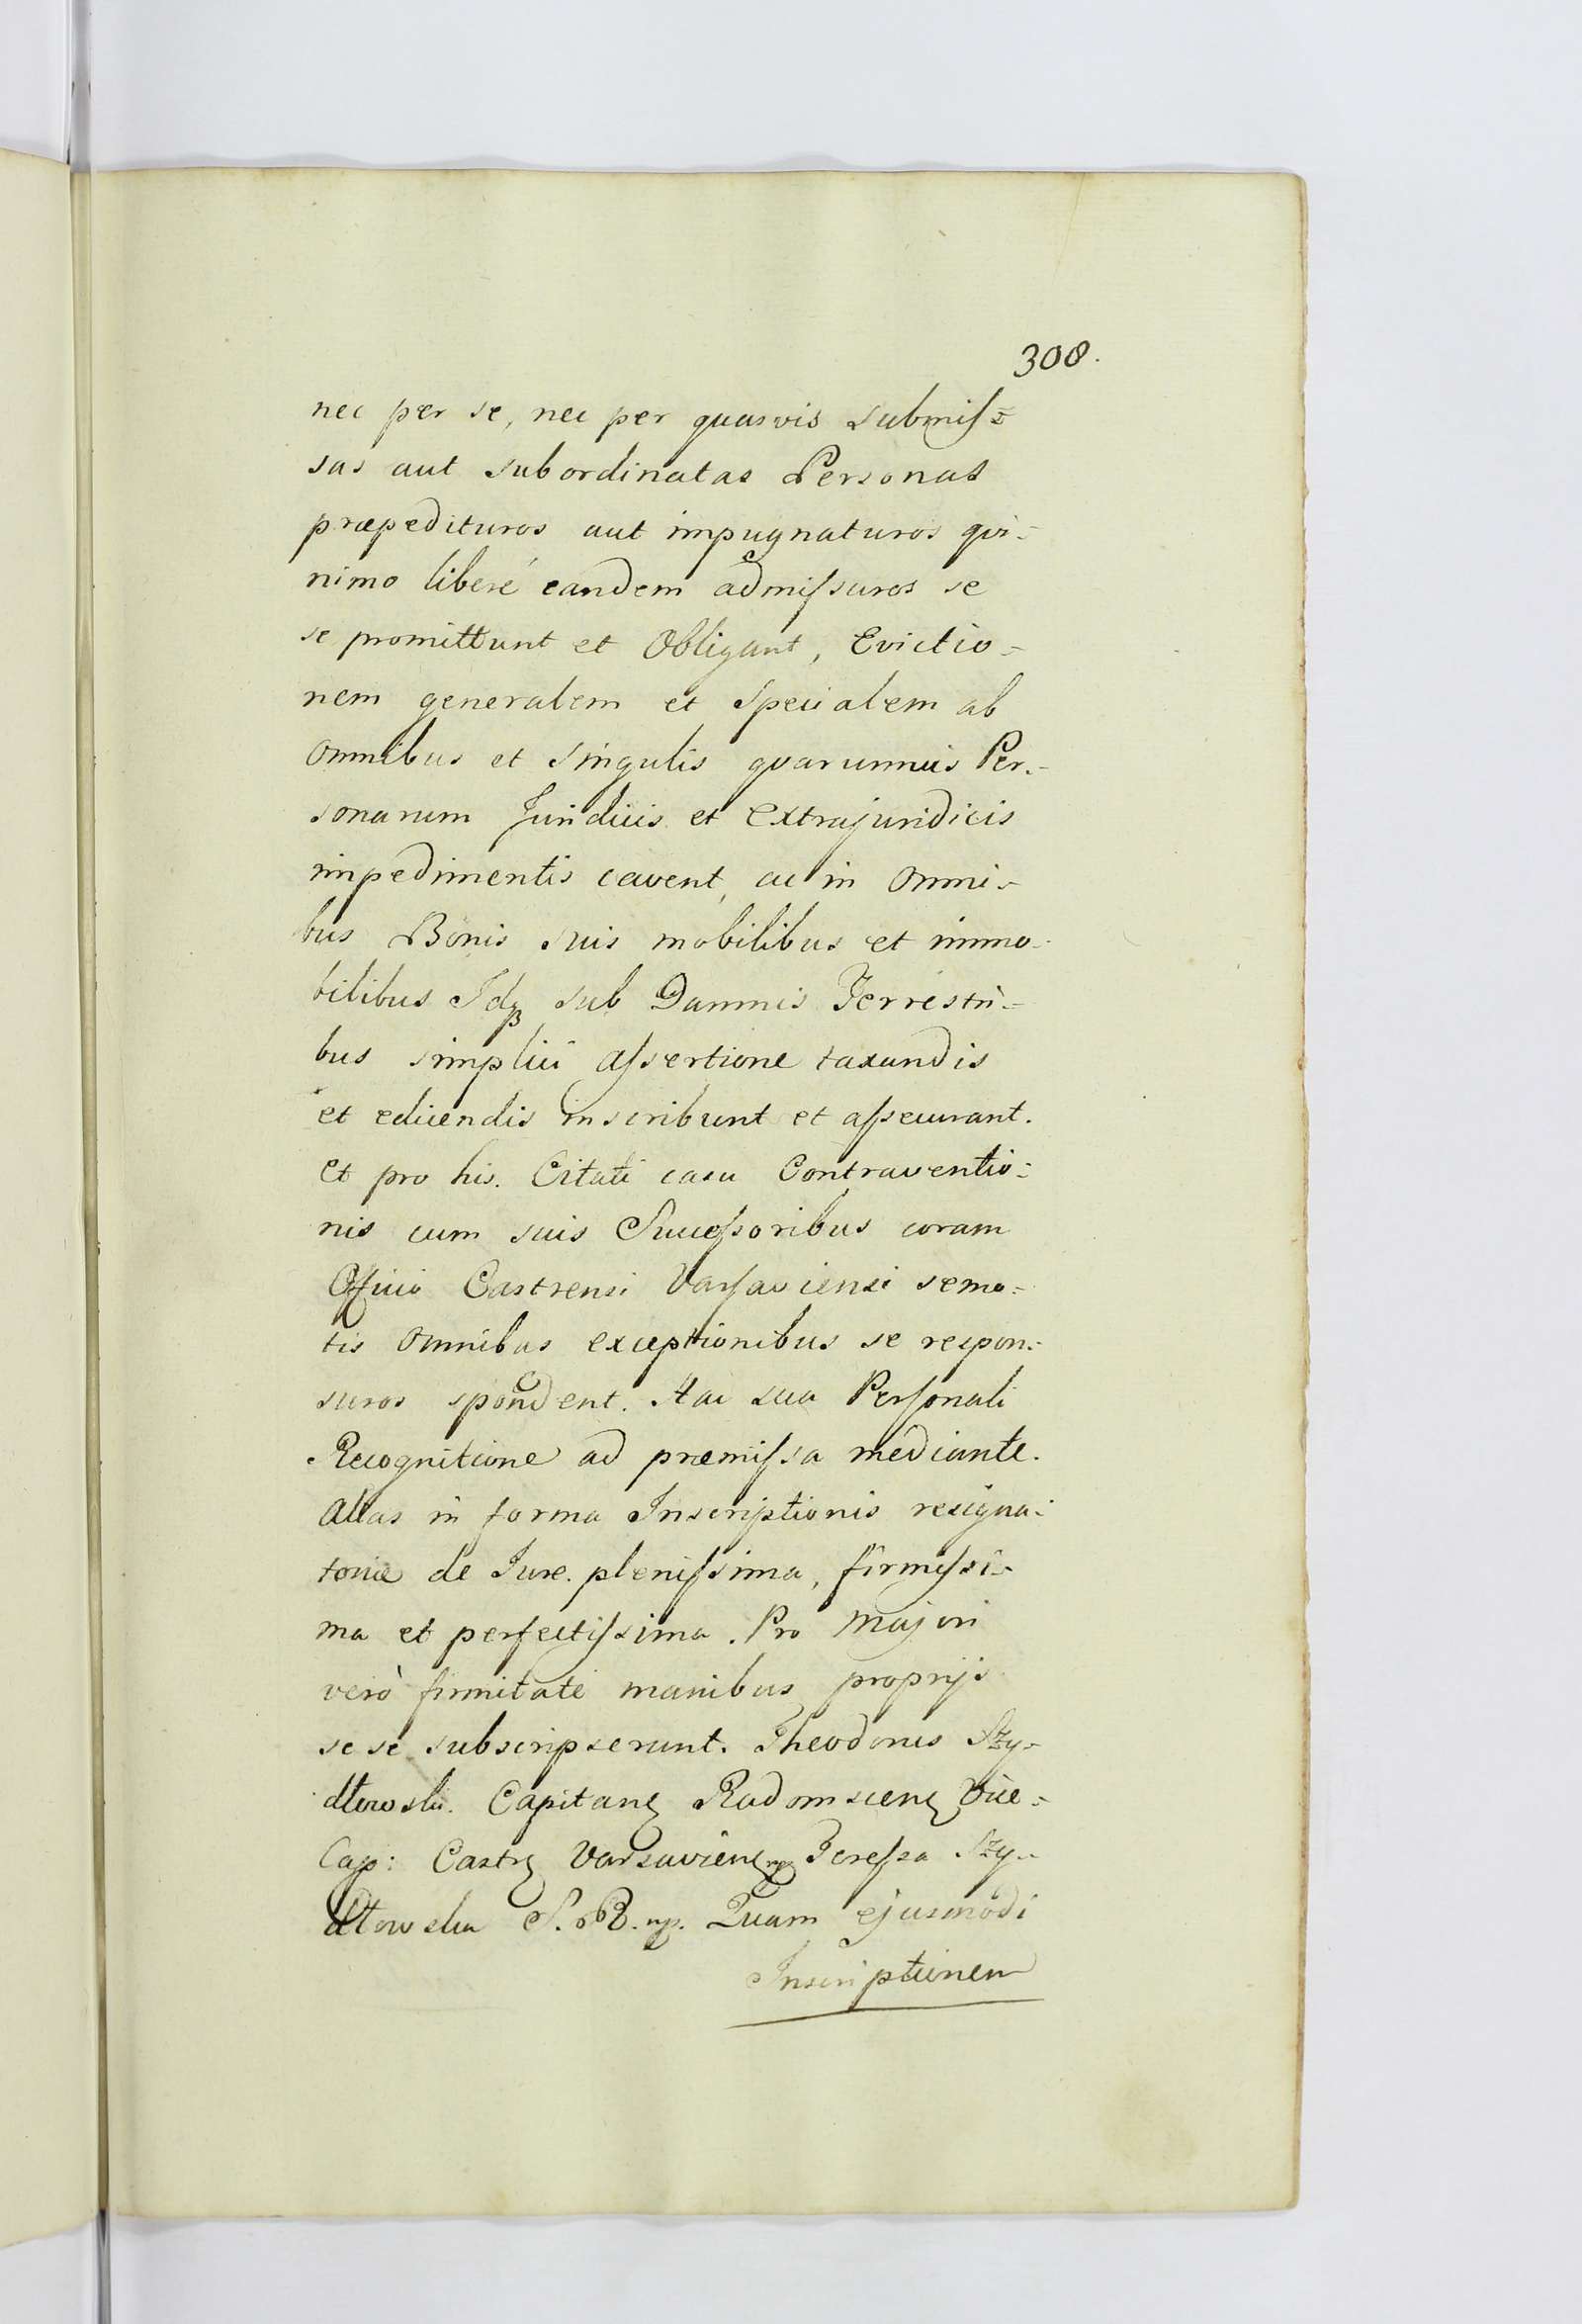 308.
nec per se, nec per quasvis submiſ=
sas aut subordinatas Personas
præpedituros aut impugnaturos qvi=
nimo liberé eandem admiſsuros se
se promittunt et Obligant, Evictio=
nem generalem et Specialem ab
omnibus et Singulis qvarumvis Per=
sonarum Juridicis et extrajuridicis
impedimentis cavent, ac in Omni=
bus Bonis suis mobilibus et immo
bilibus Idqꝫ sub Damnis Terrestri=
bus simplici aſsertione taxandis
et edicendis inscribunt et aſsecurant.
et pro his. Citati casu Contraventio=
nis cum suis Succeſsoribus coram
Officio Castrensi Varſaviensi semo=
tis omnibus exceptionibus se respon=
suros spondent. Hac sua Perſonali
Recognitione ad præmiſsa mediante.
Allas in forma Inscriptionis resigna=
toriæ de Jure. pleniſsima, firmiſsi=
ma et perfectiſsima. Pro Majori
verò firmitate manibus proprijs
se se subscripserunt. Theodorus Szy=
dłowski. Capitang Radomscieng Vice=
Cap: Castrg Varsavieng mp Tereſsa Szy=
dłowska S. R. mp. Quam ejusmodi
Inscriptionem